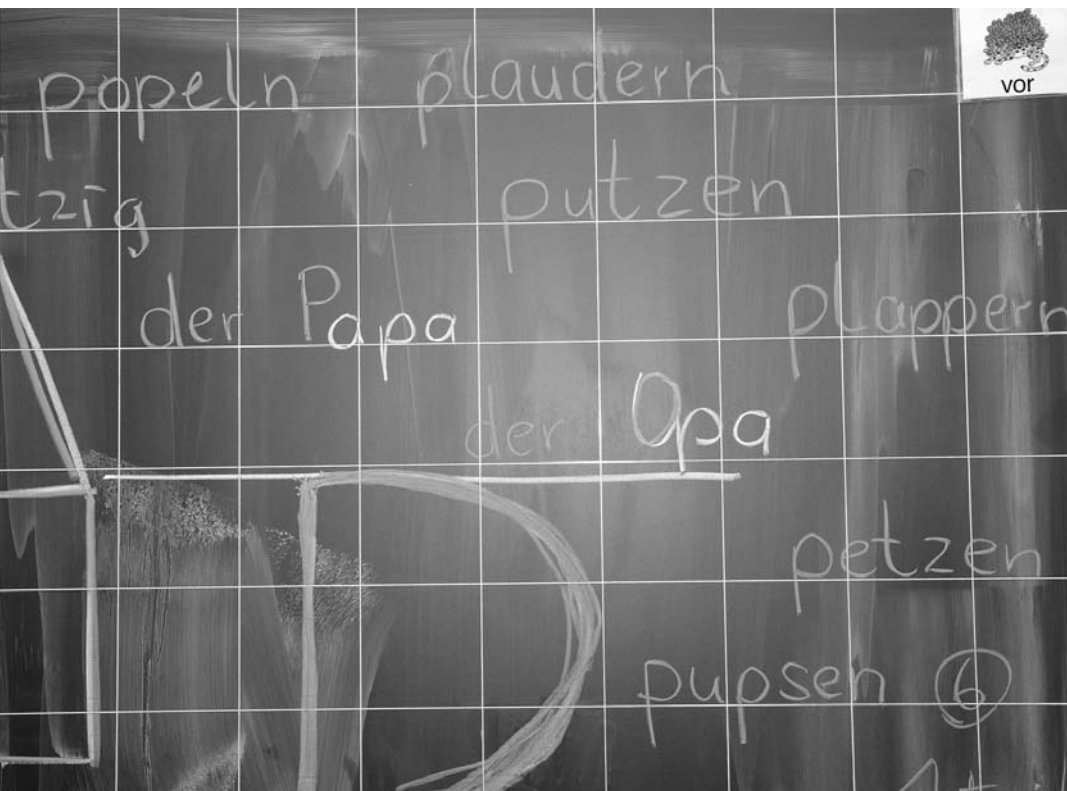 popeln plaudern
vor
tzig putzen
der Papa plappern
der Opa
petzen
pupsen 6